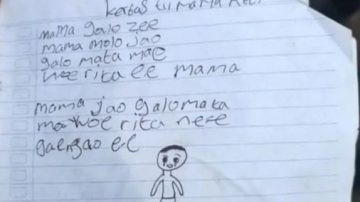 kertas tii mama ret
mama galo zee
mama molo jao
galo mata mae
woe rita ee mama
mama jao galo mata
mae woe rita ne'e
gae ngao ee